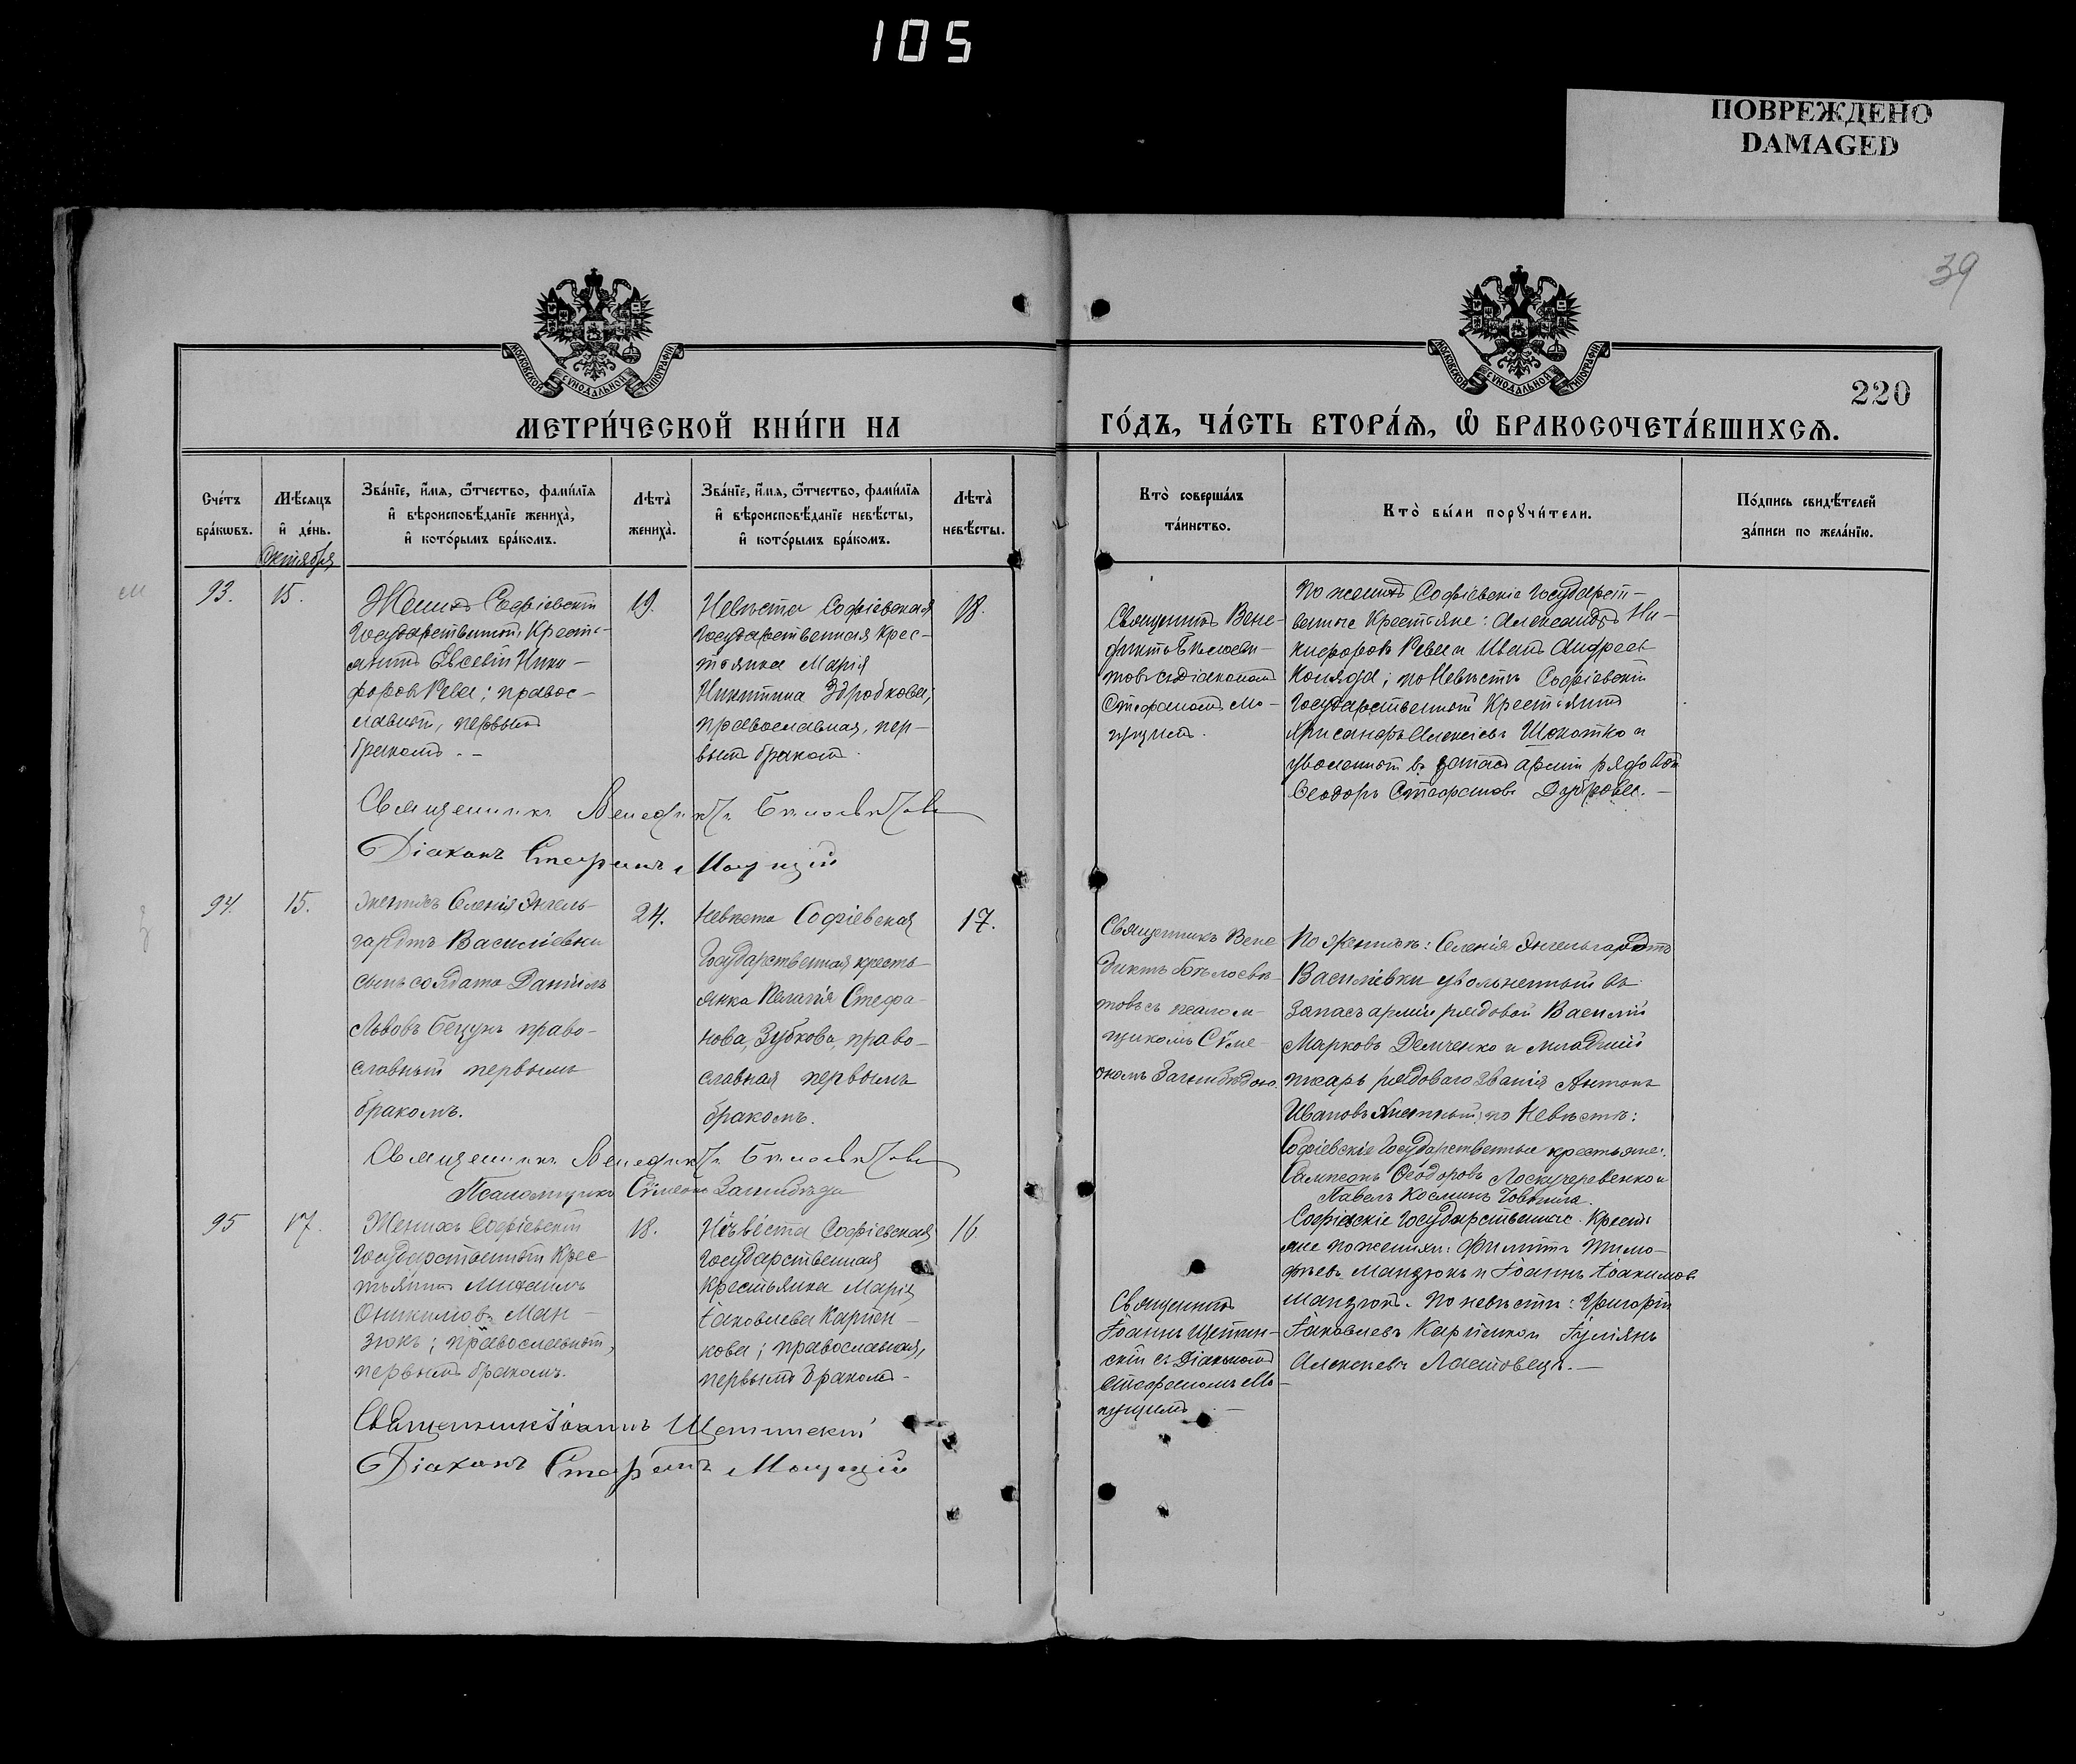 105
ПОВРЕЖДЕНО
DAMAGED
39
МОСКОВСКОЙ СУНОДАЛЬНОЙ ТИПОГРАФІИ
МОСКОВСКОЙ СУНОДАЛЬНОЙ ТИПОГРАФІИ
220
МЕТРИ́ЧЕСКОЙ КНИ́ГИ НА
ГО́ДЪ, ЧА́СТЬ ВТОРА́Ѧ, Ѡ҆ БРАКОСОЧЕТА́ВШИХСѦ.
Сче́тъ
бра́кѡвъ.
Мѣ́сѧцъ
и҆ де́нь.
Октября
Зва́нїе, и҆́мѧ, ѻ҆́тчество, фами́лїѧ
и҆ вѣроисповѣ́данїе жениха̀,
и҆ кото́рымъ бра́комъ.
Лѣта̀
жениха̀.
Зва́нїе, и҆́мѧ, ѻ҆́тчество, фами́лїѧ
и҆ вѣроисповѣ́данїе невѣ́сты,
и҆ кото́рымъ бра́комъ.
Лѣта̀
невѣ́сты.
Кто̀ соверша́лъ
та́инство.
Кто̀ бы́ли порꙋчи́тели.
По́дпись свидѣ́телей
за́писи по жела́нїю.
м
93.
15.
Женихъ Софіевскій
Государственный Кресть-
янинъ Евсевій Ники-
форовъ Рева; правос-
лавный, первымъ
бракомъ. -
19.
Невѣста Софіевская
Государственная Крес-
тьянка Марія
Никитина Здробкова;
православная, пер-
вымъ бракомъ.
18.
Священникъ Вене-
диктъ Бѣлосвѣ-
товъ съ діакономъ
Стефаномъ Мо-
пущимъ.
По женихѣ Софіевскіе Государст-
венные Крестьяне: Александръ Ни-
кифоровъ Рева и Иванъ Андреевъ
Коляда; по Невѣстѣ Софіевскій
Государственный Крестьянинъ
Алексіевъ и
уволенный въ запасъ арміи рядовой
Ѳеодоръ Стефановъ Дуброва. -
Священникъ Венедиктъ Бѣлосвѣтовъ
Діаконъ Стефанъ
94.
15.
Женихъ Селенія Энгель-
гардтъ Василіевки
сынъ солдата Даніилъ
Львовъ Бецунъ право-
славный первымъ
бракомъ.
24.
Невѣста Софіевская
Государственная кресть-
янка Пелагія Стефа-
нова, Зубкова, право-
славная первымъ
бракомъ.
17.
Священникъ Вене
диктъ Бѣлосвѣ-
товъ съ псалом-
щикомъ Сѵме-
ономъ Загнибѣдою.
По женихѣ: Селенія Энгельгардтъ
Василіевки увольненный въ
запасъ арміи рядовой Василій
Марковъ Демченко и младшій
писарь рядоваго званія Антонъ
Ивановъ по Невѣстѣ:
Софіевскіе Государственные крестьяне:
Сампсонъ Ѳеодоровъ Лоскучеревенко и
Павелъ Косминъ
Священникъ Венедиктъ Бѣлосвѣтовъ
Псаломщикъ Сѵмеонъ Загнибѣда
95
17.
Женихъ Софіевскій
Государственный Крес
тьянинъ Михаилъ
Ман-
зюкъ; православный,
первымъ бракомъ.
18.
Невѣста Софіевская
Государственная
Крестьянка Марія
Іаковлева Карпен-
кова; православная,
первымъ бракомъ-
16.
Священникъ
Іоаннъ Щетин-
скій съ Діакономъ
Стефаномъ Мо-
пущимъ -
Софіевскіе Государственные Кресть
яне по женихѣ: Филиппъ Тимо-
фѣевъ Манзюкъ и Іоаннъ Іоакимовъ
Манзюкъ. По невѣстѣ: Григорій
Іаковлевъ Карпенко и Іуліянъ
Алексіевъ Ластовецъ. -
Священникъ Іоаннъ Щетинскій
Діаконъ Стефанъ